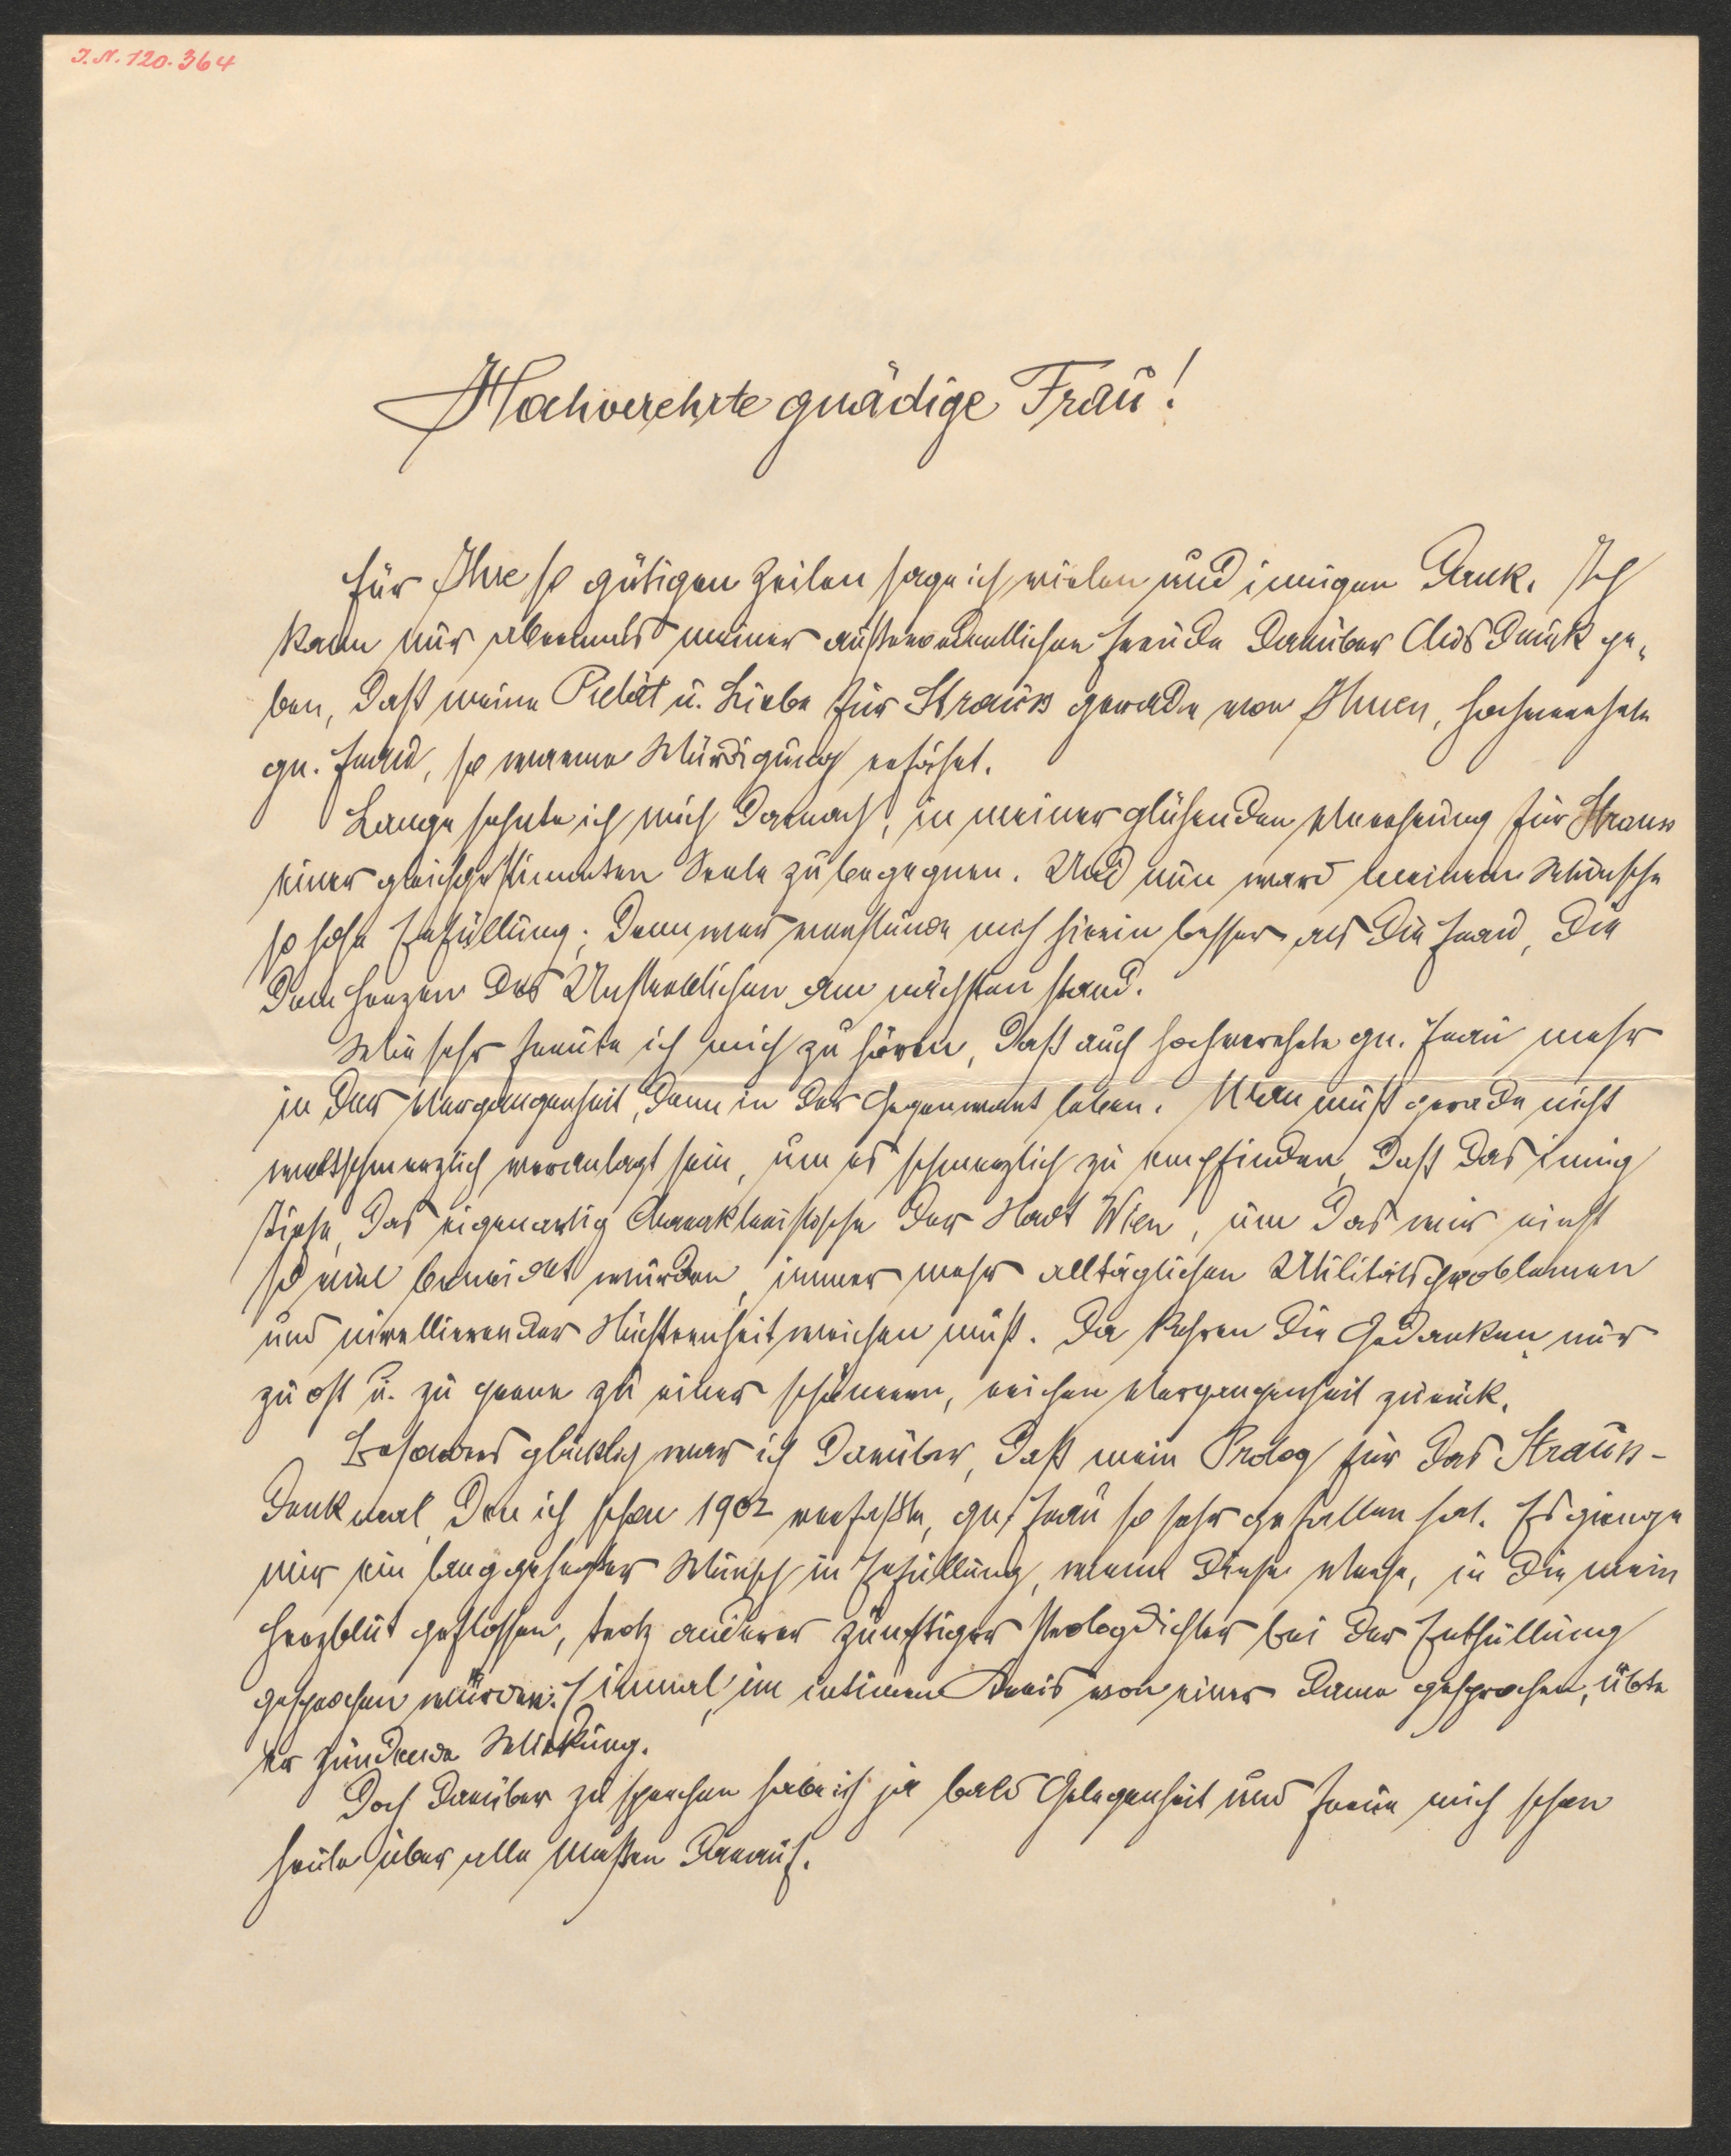 J.N. 120.364
Hochverehrte gnädige Frau!
Für Ihre so gütigen Zeilen sage ich vielen und innigen Dank. Ich
kann nur abermals meiner außerordentlichen Freude darüber Ausdruck ge-
ben, daß meine Pietät u. Liebe für Strauss gerade von Ihnen, hochverehrte
gn. Frau, so warme Würdigung erfährt.
Lange sehnte ich mich darnach, in meiner glühenden Verehrung für Strauss
einer gleichgestimmten Seele zu begegnen. Und nun ward meinem Wunsche
so hohe Erfüllung; denn wer verstünde mich hierin besser als die Frau, die
dem Herzen des Unsterblichen am nächsten stand.
Wie sehr freute ich mich zu hören, daß auch hochverehrte gn. Frau mehr
in der Vergangenheit, denn in der Gegenwart leben. Man muß gerade nicht
weltschmerzlich veranlagt sein, um es schmerzlich zu empfinden, daß das innig
tiefe, das eigenartig Charakteristische der Stadt Wien, um das wir einst
so viel beneidet wurden, immer mehr alltäglichen Utilitätsproblemen
und nivellierender Nüchternheit weichen muß. Da kehren die Gedanken nur
zu oft u. zu gerne zu einer schöneren, reichen Vergangenheit zurück.
Besonders glücklich war ich darüber, daß mein Prolog für das Strauss-
Denkmal, den ich schon 1902 verfaßte, gn. Frau so sehr gefallen hat. Es gienge
mir ein langgehegter Wunsch in Erfüllung, wenn diese Verse, in die mein
Herzblut geflossen, trotz anderer zünftiger Prologdichter bei der Enthüllung
gesprochen würden. Einmal, im intimen Kreis von einer Dame gesprochen, übte
er zündende Wirkung.
Doch darüber zu sprechen habe ich ja bald Gelegenheit und freue mich schon
heute über alle Maßen darauf.